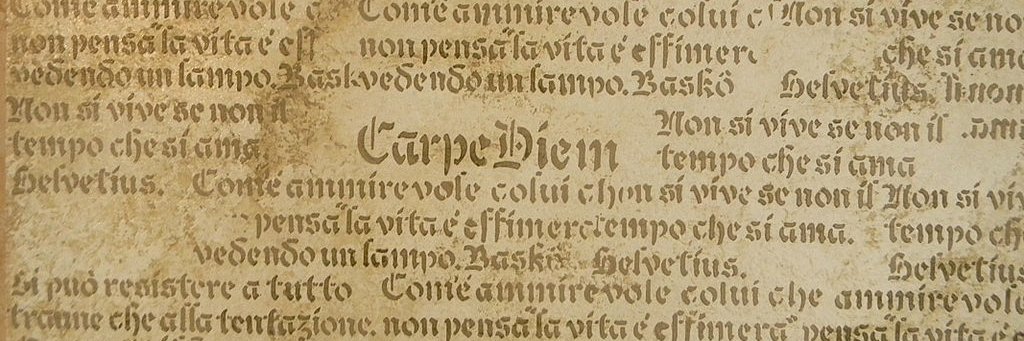 Com'è ammirevole c Com'è ammirevole colui c Non si vive se no
non pensa "la vita è eff non pensa "la vita è effimer che si ama
vedendo un lampo. Bask vedendo un lampo. Baskö Helvetius.
Non si vive se non il Non si vive se non il
tempo che si ama Carpe Diem tempo che si ama
Helvetius. Com'è ammirevole colui ch on si vive se non il Non si viv
pensa "la vita è effimer tempo che si ama. tempo ch
vedendo un lampo. Baskö Helvetius. Helvetius
Si può resistere a tutto Com'è ammirevole colui che ammirevole
tranne che alla tentazione. non pensa "la vita è effimera" pensa "la vita è e